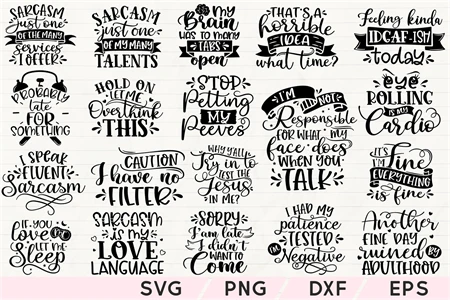 SARCASM
Just one
OF THE MANY
Services
I OFFER
SARCASM
just one
OF MY MANY
TALENTS
My
Brain
HAS TO MANY
TABS
open
THAT'S A
horrible
IDEA
what time?
Feeling kinda
IDGAF-ISH
today
PROBABLY
late
FOR
SOMETHING
HOLD ON
LET ME
Overthink
THIS
STOP
Petting
MY
Peeves
I'M NOT
Responsible
FOR WHAT my
face DOES
WHEN YOU
TALK
eye
ROLLING
IS MY
Cardio
I SPEAK
FLUENT
Sarcasm
CAUTION
I have no
FILTER
WHY Y'ALL
Try in to
TEST THE
Jesus
IN ME?
IT'S
I'm Fine
EVERYTHING
is fine
IF YOU
Love me
LET ME
Sleep
SARCASM
IS MY
LOVE
LANGUAGE
SORRY
I am late
I didn't
WANT TO
Come
I HAD MY
patience
TESTED
I'M Negative
Another
FINE DAY
ruined BY
ADULTHOOD
SVG / PNG / DXF / EPS